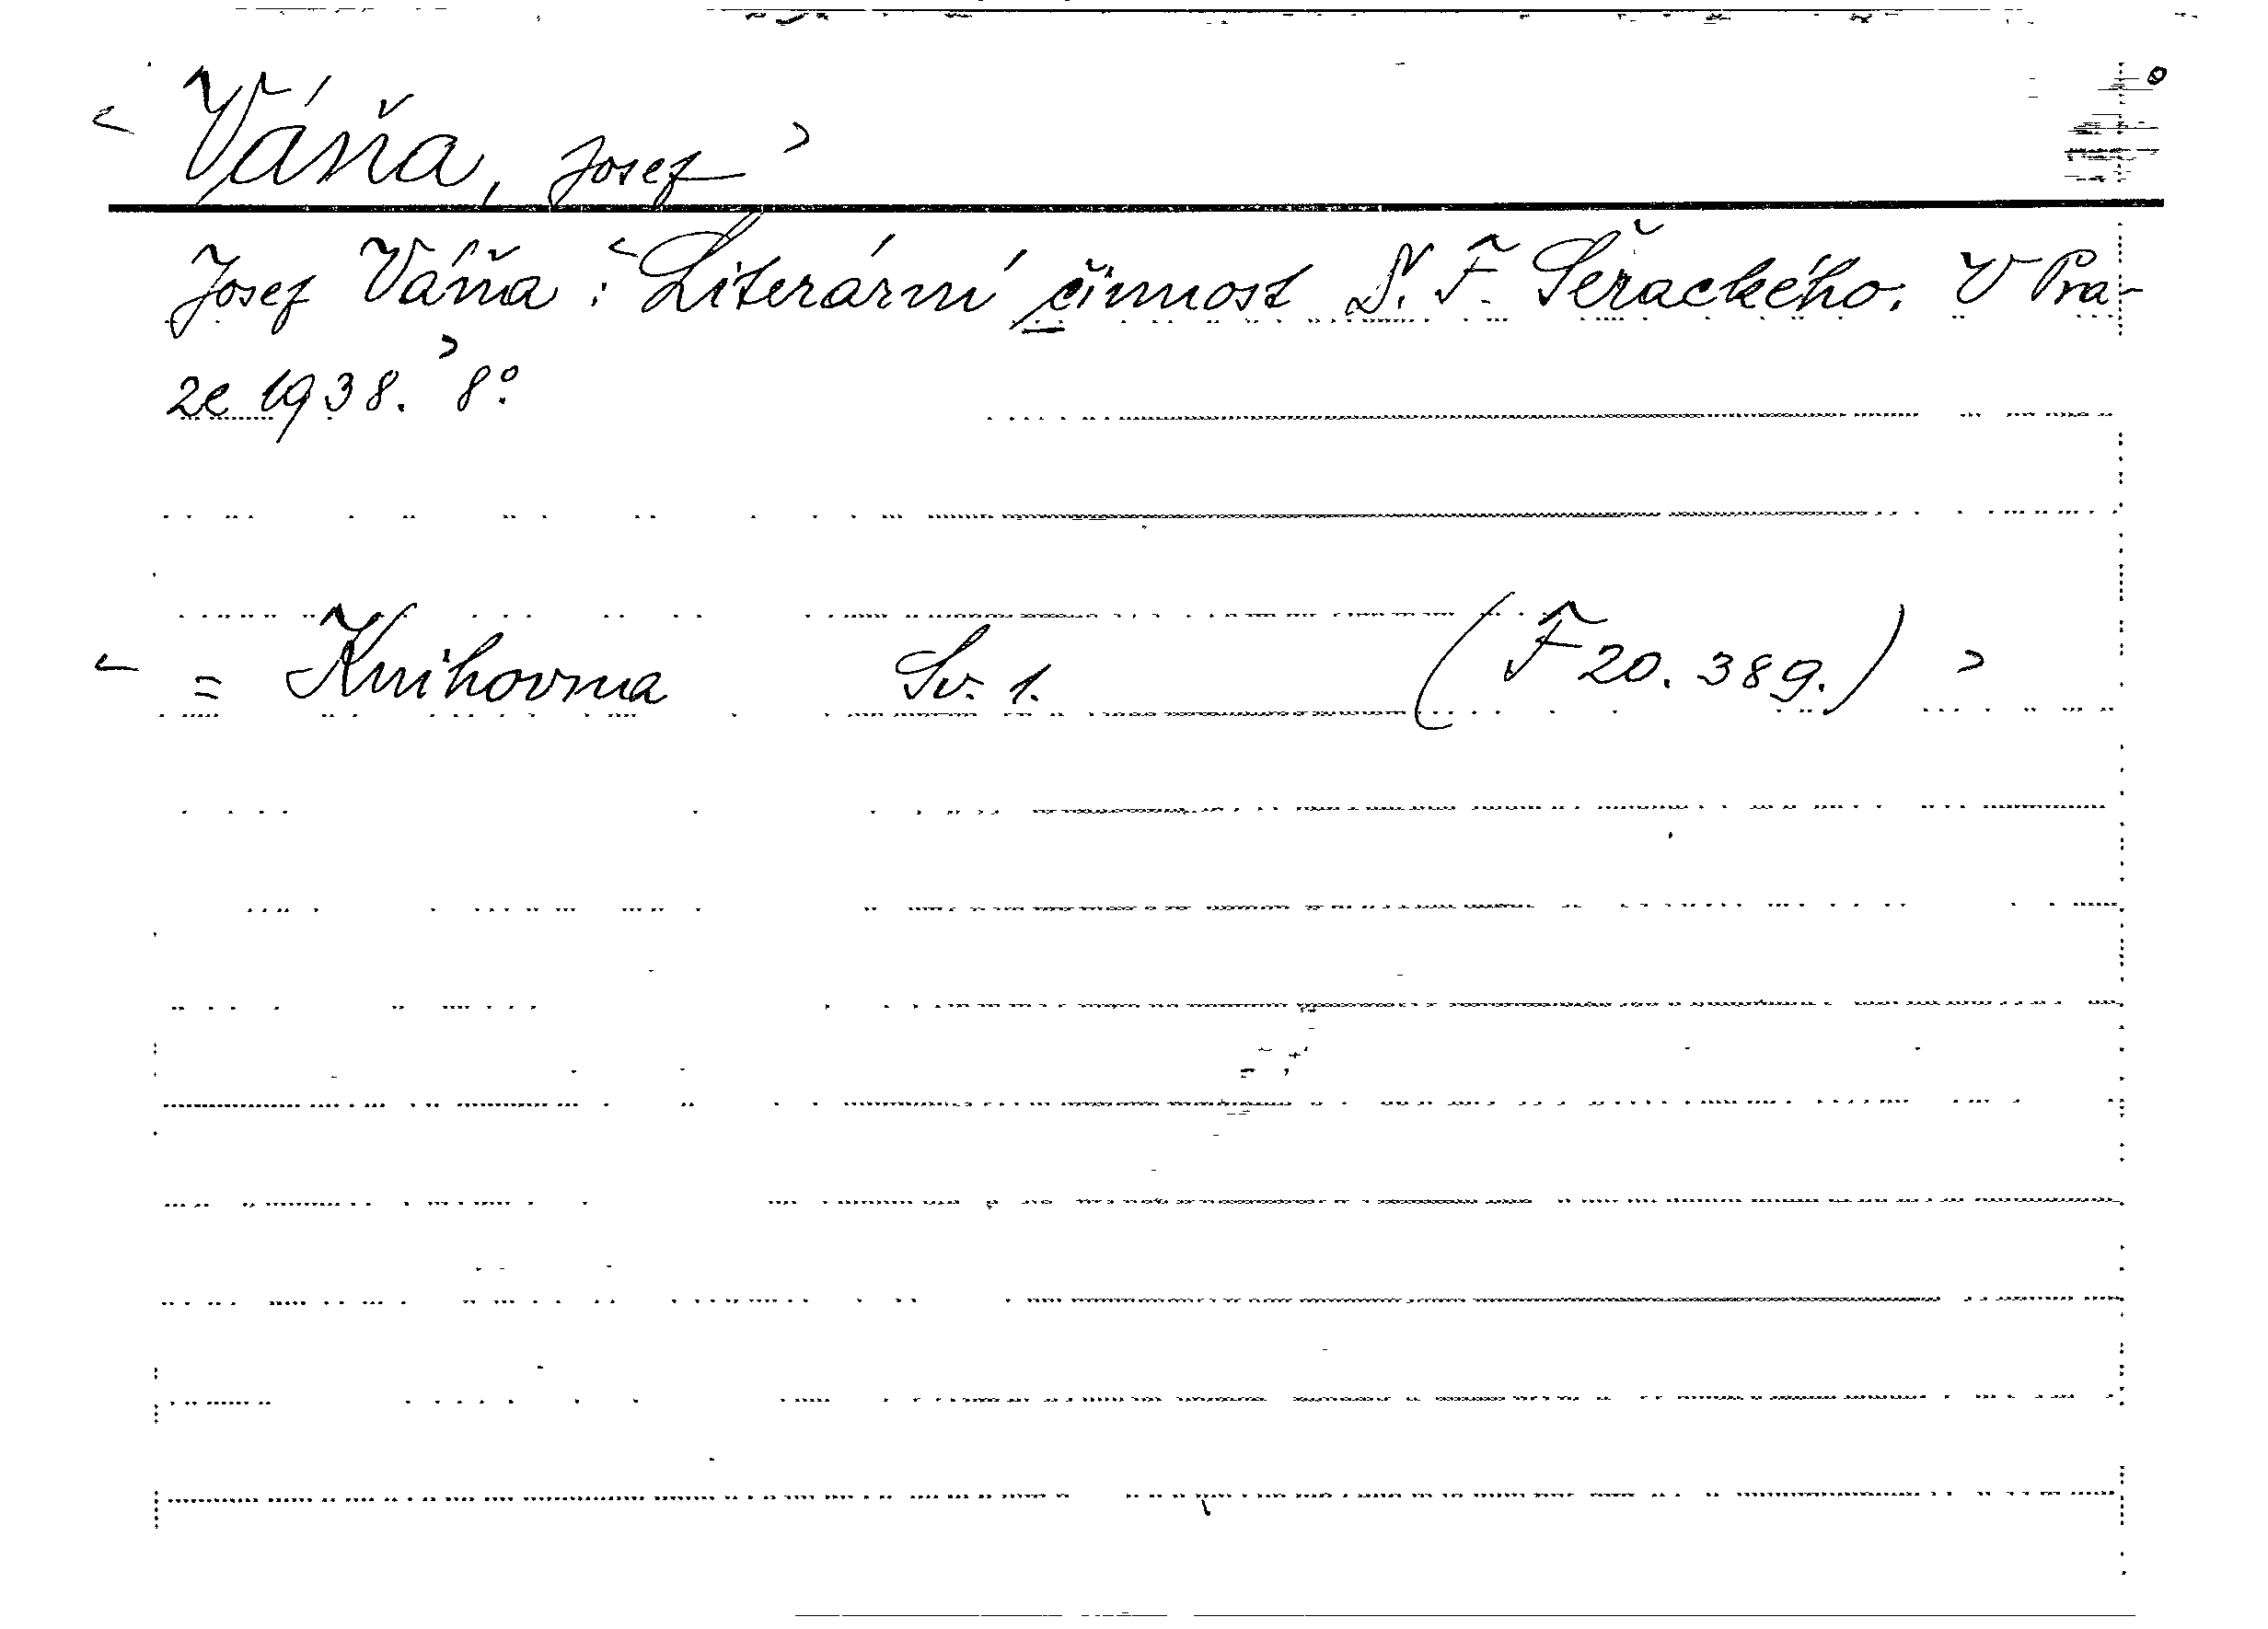 < Váňa, Josef >
Josef Váňa : < Literární činnost N. F. Šeřackého. V Pra-
ze 1938. > 8°.
< = Knihovna Sv. 1. (F 20.389.) >